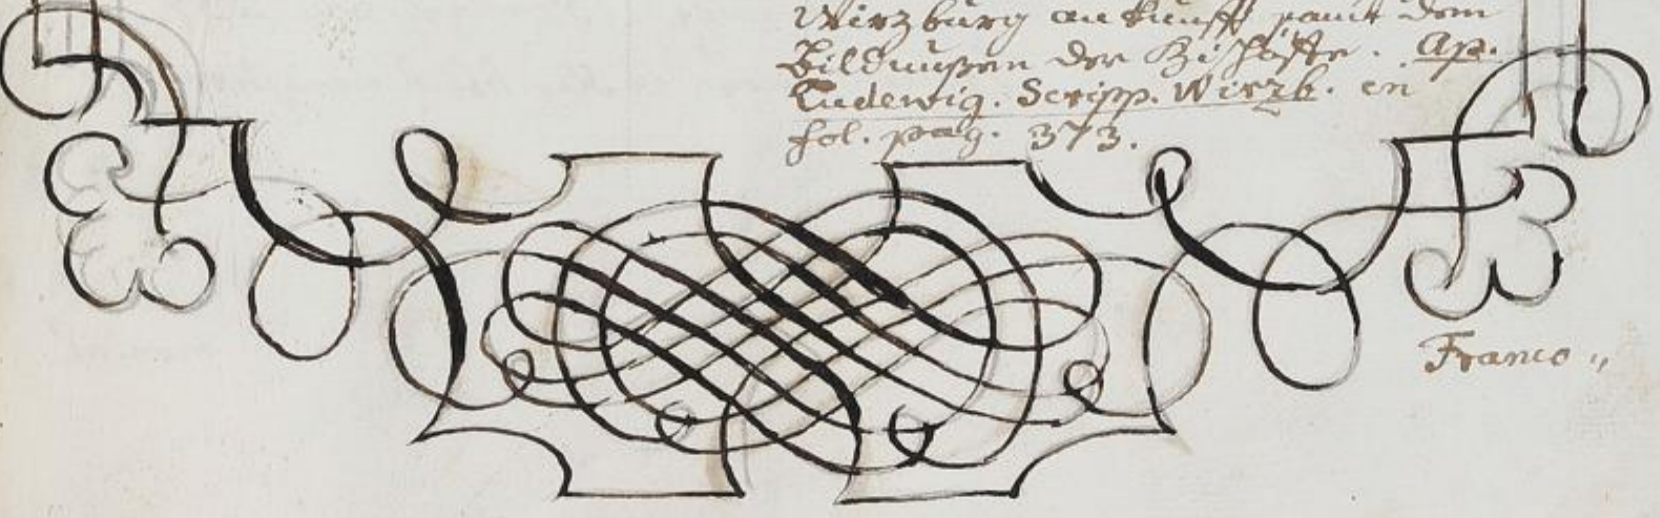 Wirzburg ankunfft samt dem
Bildnußen der Bischöffe. Ap.
Ludewig. Scripp. Wirzb. in
fol. pag. 373.
Franco„